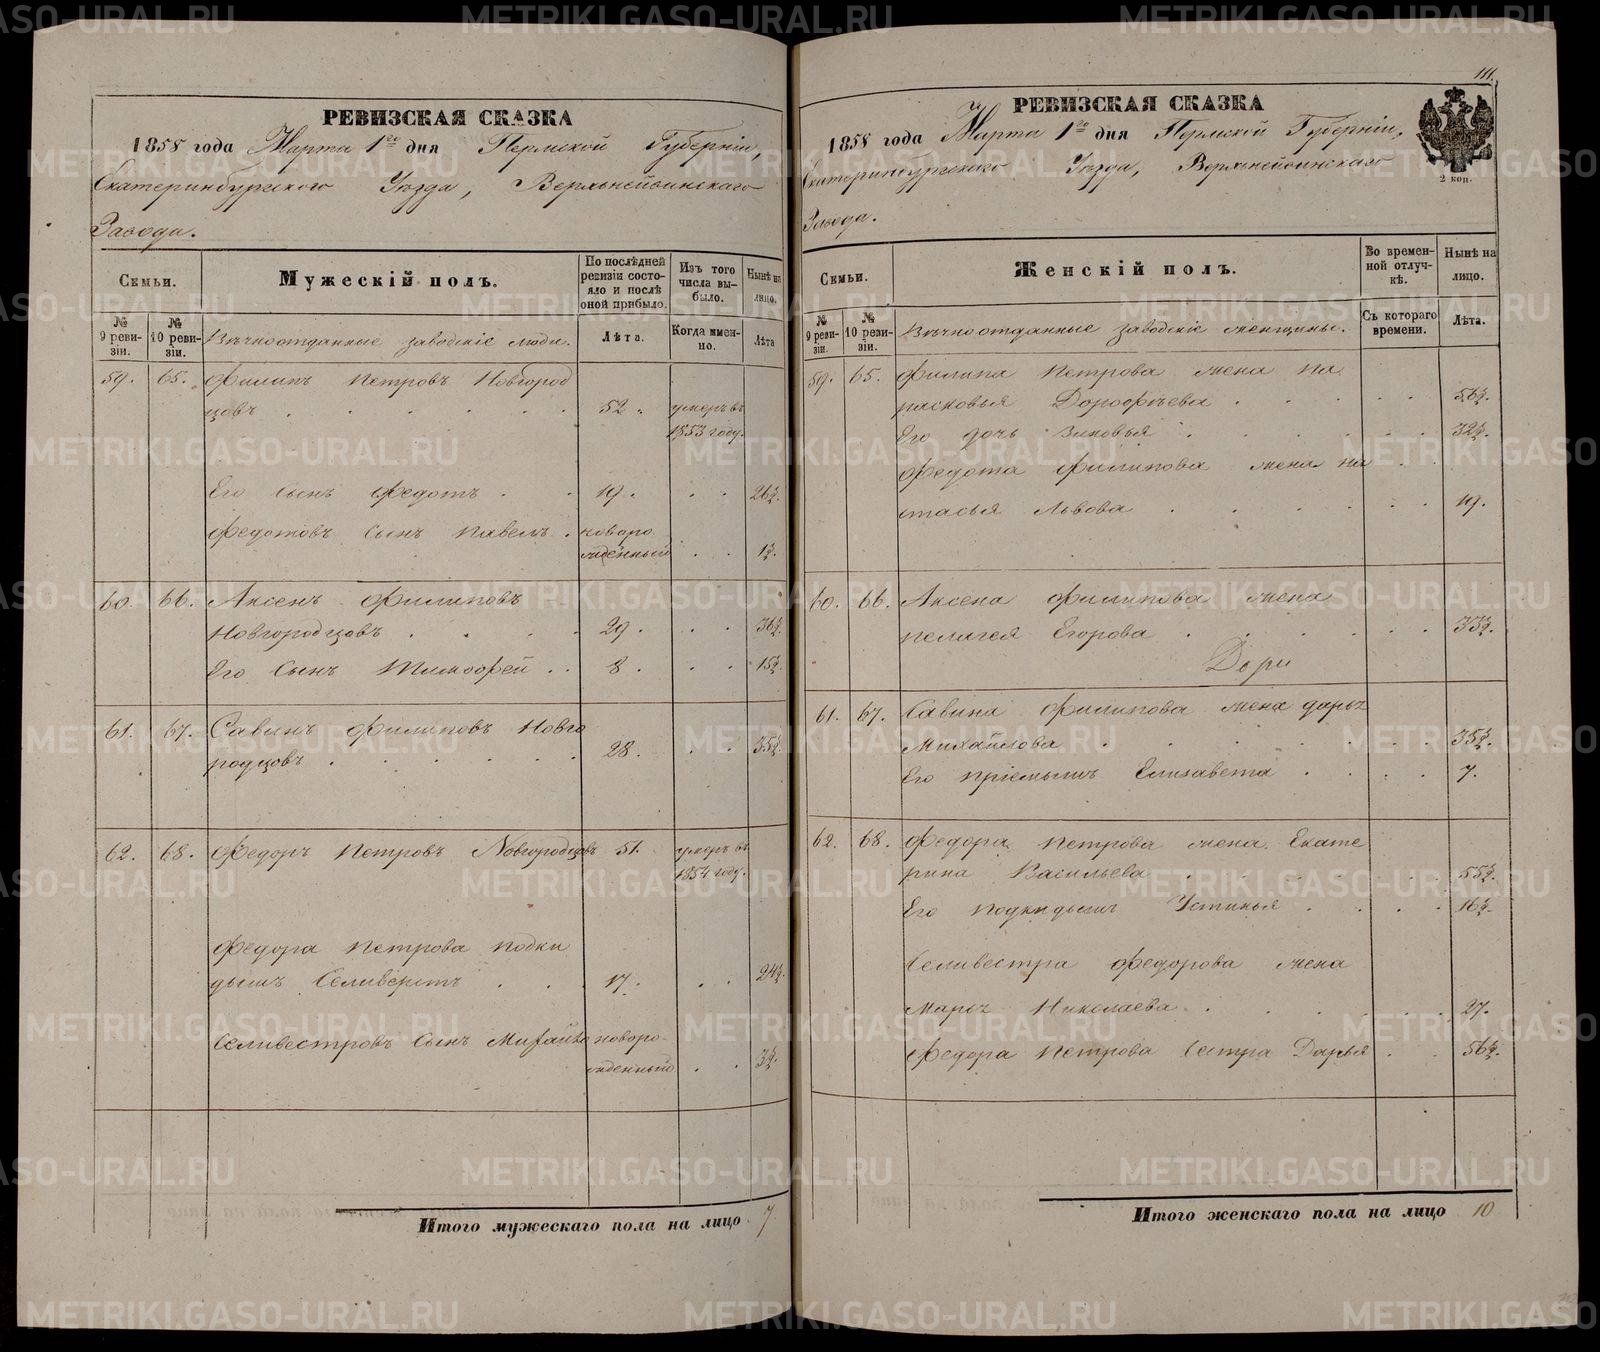 РЕВИЗСКАЯ СКАЗКА
1858 года Марта 1го дня Пермской Губерніи,
Екатеринбургскаго Уѣзда, Верхънейвинскаго
Завода.
Семьи.
Мужескій полъ.
По послѣдней ревизіи состояло и послѣ оной прибыло.
Изъ того числа выбыло.
Нынѣ на лицо.
№ 9 ревизіи.
№ 10 ревизіи.
Вѣчноотданные заводскіе люди.
Лѣта.
Когда именно.
Лѣта
59. 65. Филипъ Петровъ Новгород
цовъ . . . . . 52. умеръ въ
1853 году.
Его сынъ Федотъ . . 19. . . 26½.
Федотовъ Сынъ Павелъ. новоро
жденный . . 1½.
60. 66. Аксенъ Филиповъ
Новгородцовъ . . . . 29. . . 36½.
Его Сынъ Тимофей . . 8. . . 15½.
61. 67. Савинъ Филиповъ Новго
родцовъ . . . . . . 28. . . 35½.
62. 68. Федоръ Петровъ Новгородцовъ 51. умеръ въ
1854 году.
Федора Петрова подки
дышъ Селиверстъ . . . 17. . . 24½.
Селивестровъ Сынъ Михайло новоро-
жденный . . 3½.
Итого мужескаго пола на лицо 7
111.
РЕВИЗСКАЯ СКАЗКА
1858 года Марта 1го дня Пермской Губерніи,
Екатеринбургскаго Уѣзда, Верхънейвинскаго
Завода.
2 коп.
Семьи.
Женскій полъ.
Во временной отлучкѣ.
Нынѣ на лицо.
№ 9 ревизіи.
№ 10 ревизіи.
Вѣчноотданные заводскіе женщины.
Съ котораго времени.
Лѣта.
59. 65. Филипа Петрова жена Па
расковья Дорофѣева . . . . . 56½.
Его дочь Зиновья . . . . . 32½.
Федота Филипова жена На
стасья Львова . . . . . . 19.
60. 66. Аксена Филипова жена
Пелагея Егорова . . . . . . 33½.
Дари
61. 67. Савина Филипова жена Дарья
Михайлова . . . . . . . . 35½.
Его пріемышъ Елизавета . . . . 7.
62. 68. Федора Петрова жена Екате
рина Васильева . . . . . . 55½.
Его подкидышъ Устинья . . . . 16½.
Селивестра Федорова жена
Марья Николаева . . . . . . 27.
Федора Петрова Сестра Дарья . . 56½.
Итого женскаго пола на лицо 10
METRIKI.GASO-URAL.RU